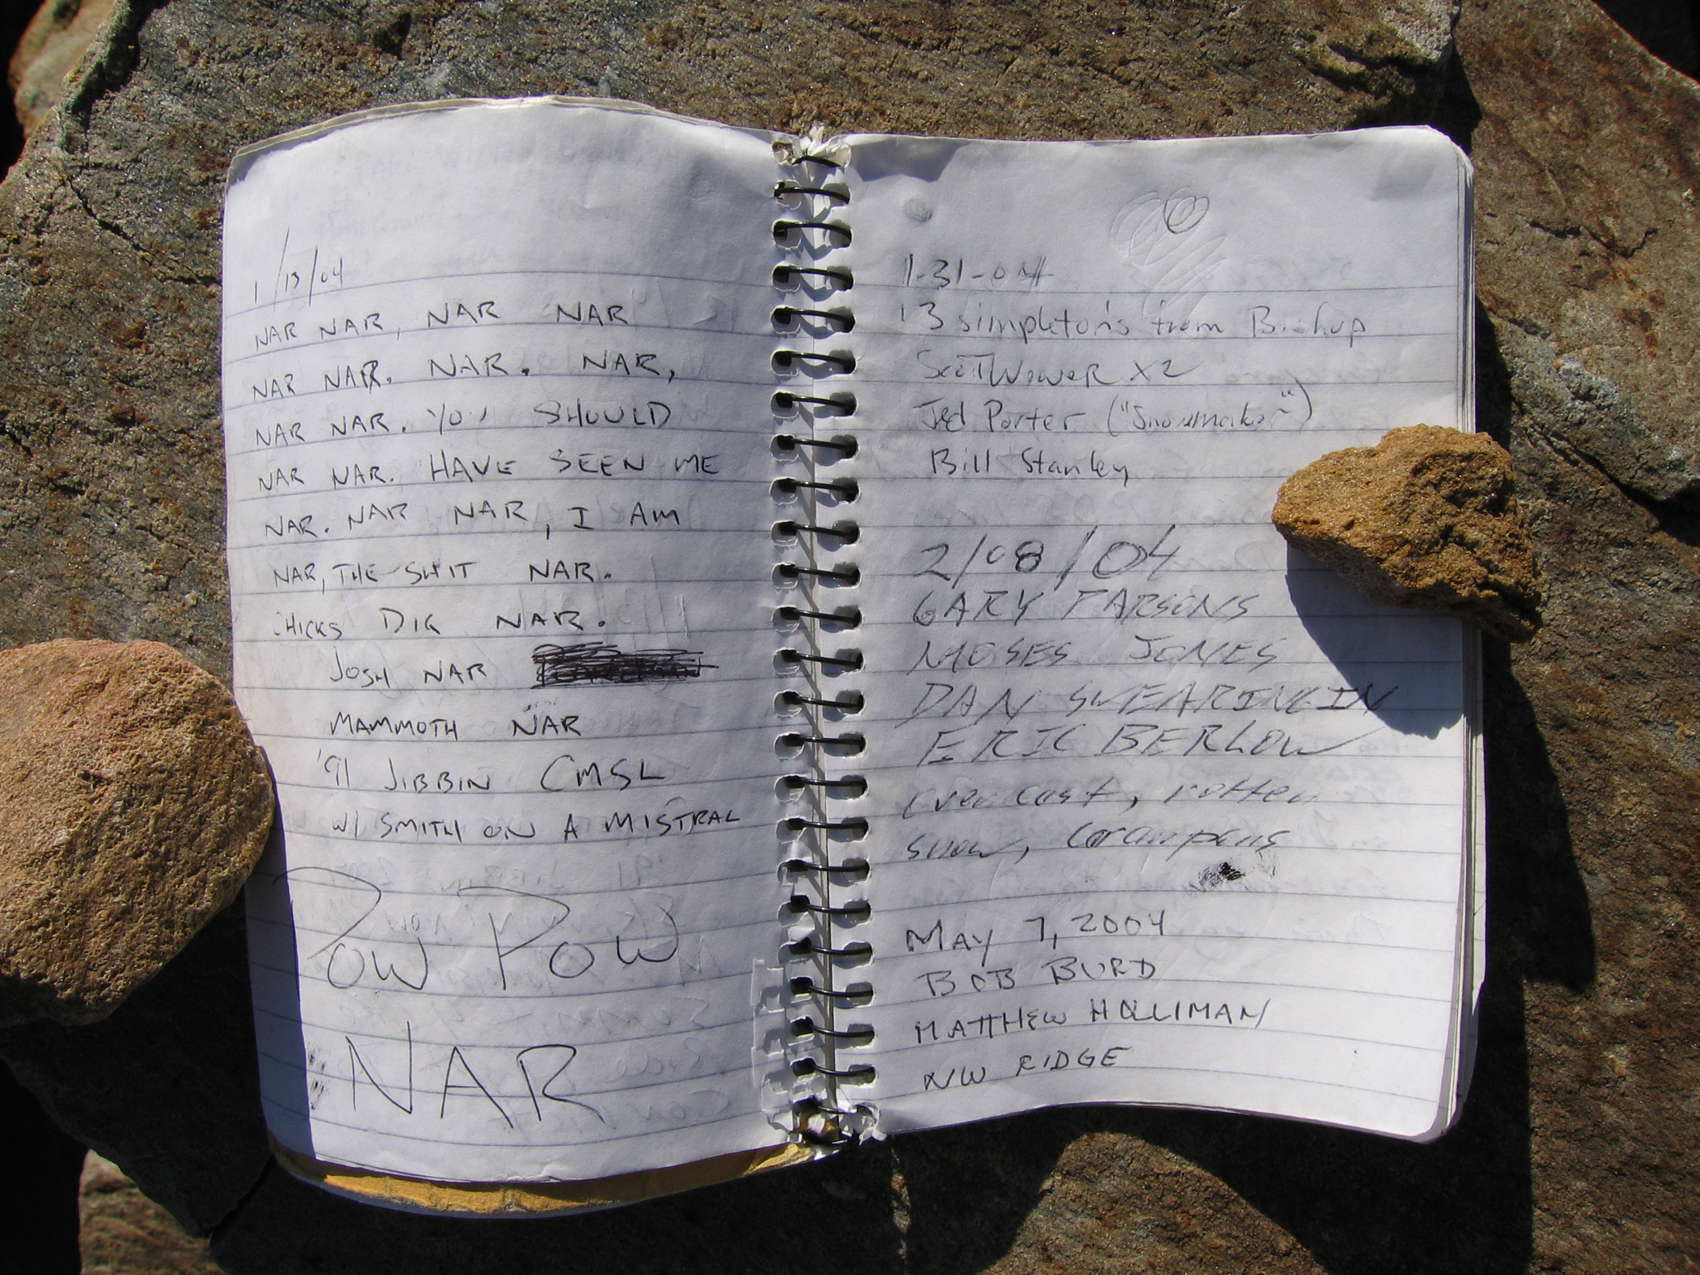 1/13/04
NAR NAR, NAR NAR
NAR NAR. NAR. NAR,
NAR NAR. YOU SHOULD
NAR NAR. HAVE SEEN ME
NAR. NAR NAR, I AM
NAR, THE SHIT NAR.
CHICKS DIG NAR.
JOSH NAR
MAMMOTH NAR
'91 JIBBIN CMSL
W/ SMITH ON A MISTRAL
POW POW
NAR
1-31-04
3 simpleton's from Bishop
Jed Porter ("Snowmaker")
Bill Stanley
2/08/04
GARY PARSONS
MOSES JONES
DAN SWEARINGIN
ERIC BERLOW
overcast, rotten
snow, crampons
MAY 7, 2004
BOB BURD
MATTHEW HOLLIMAN
NW RIDGE